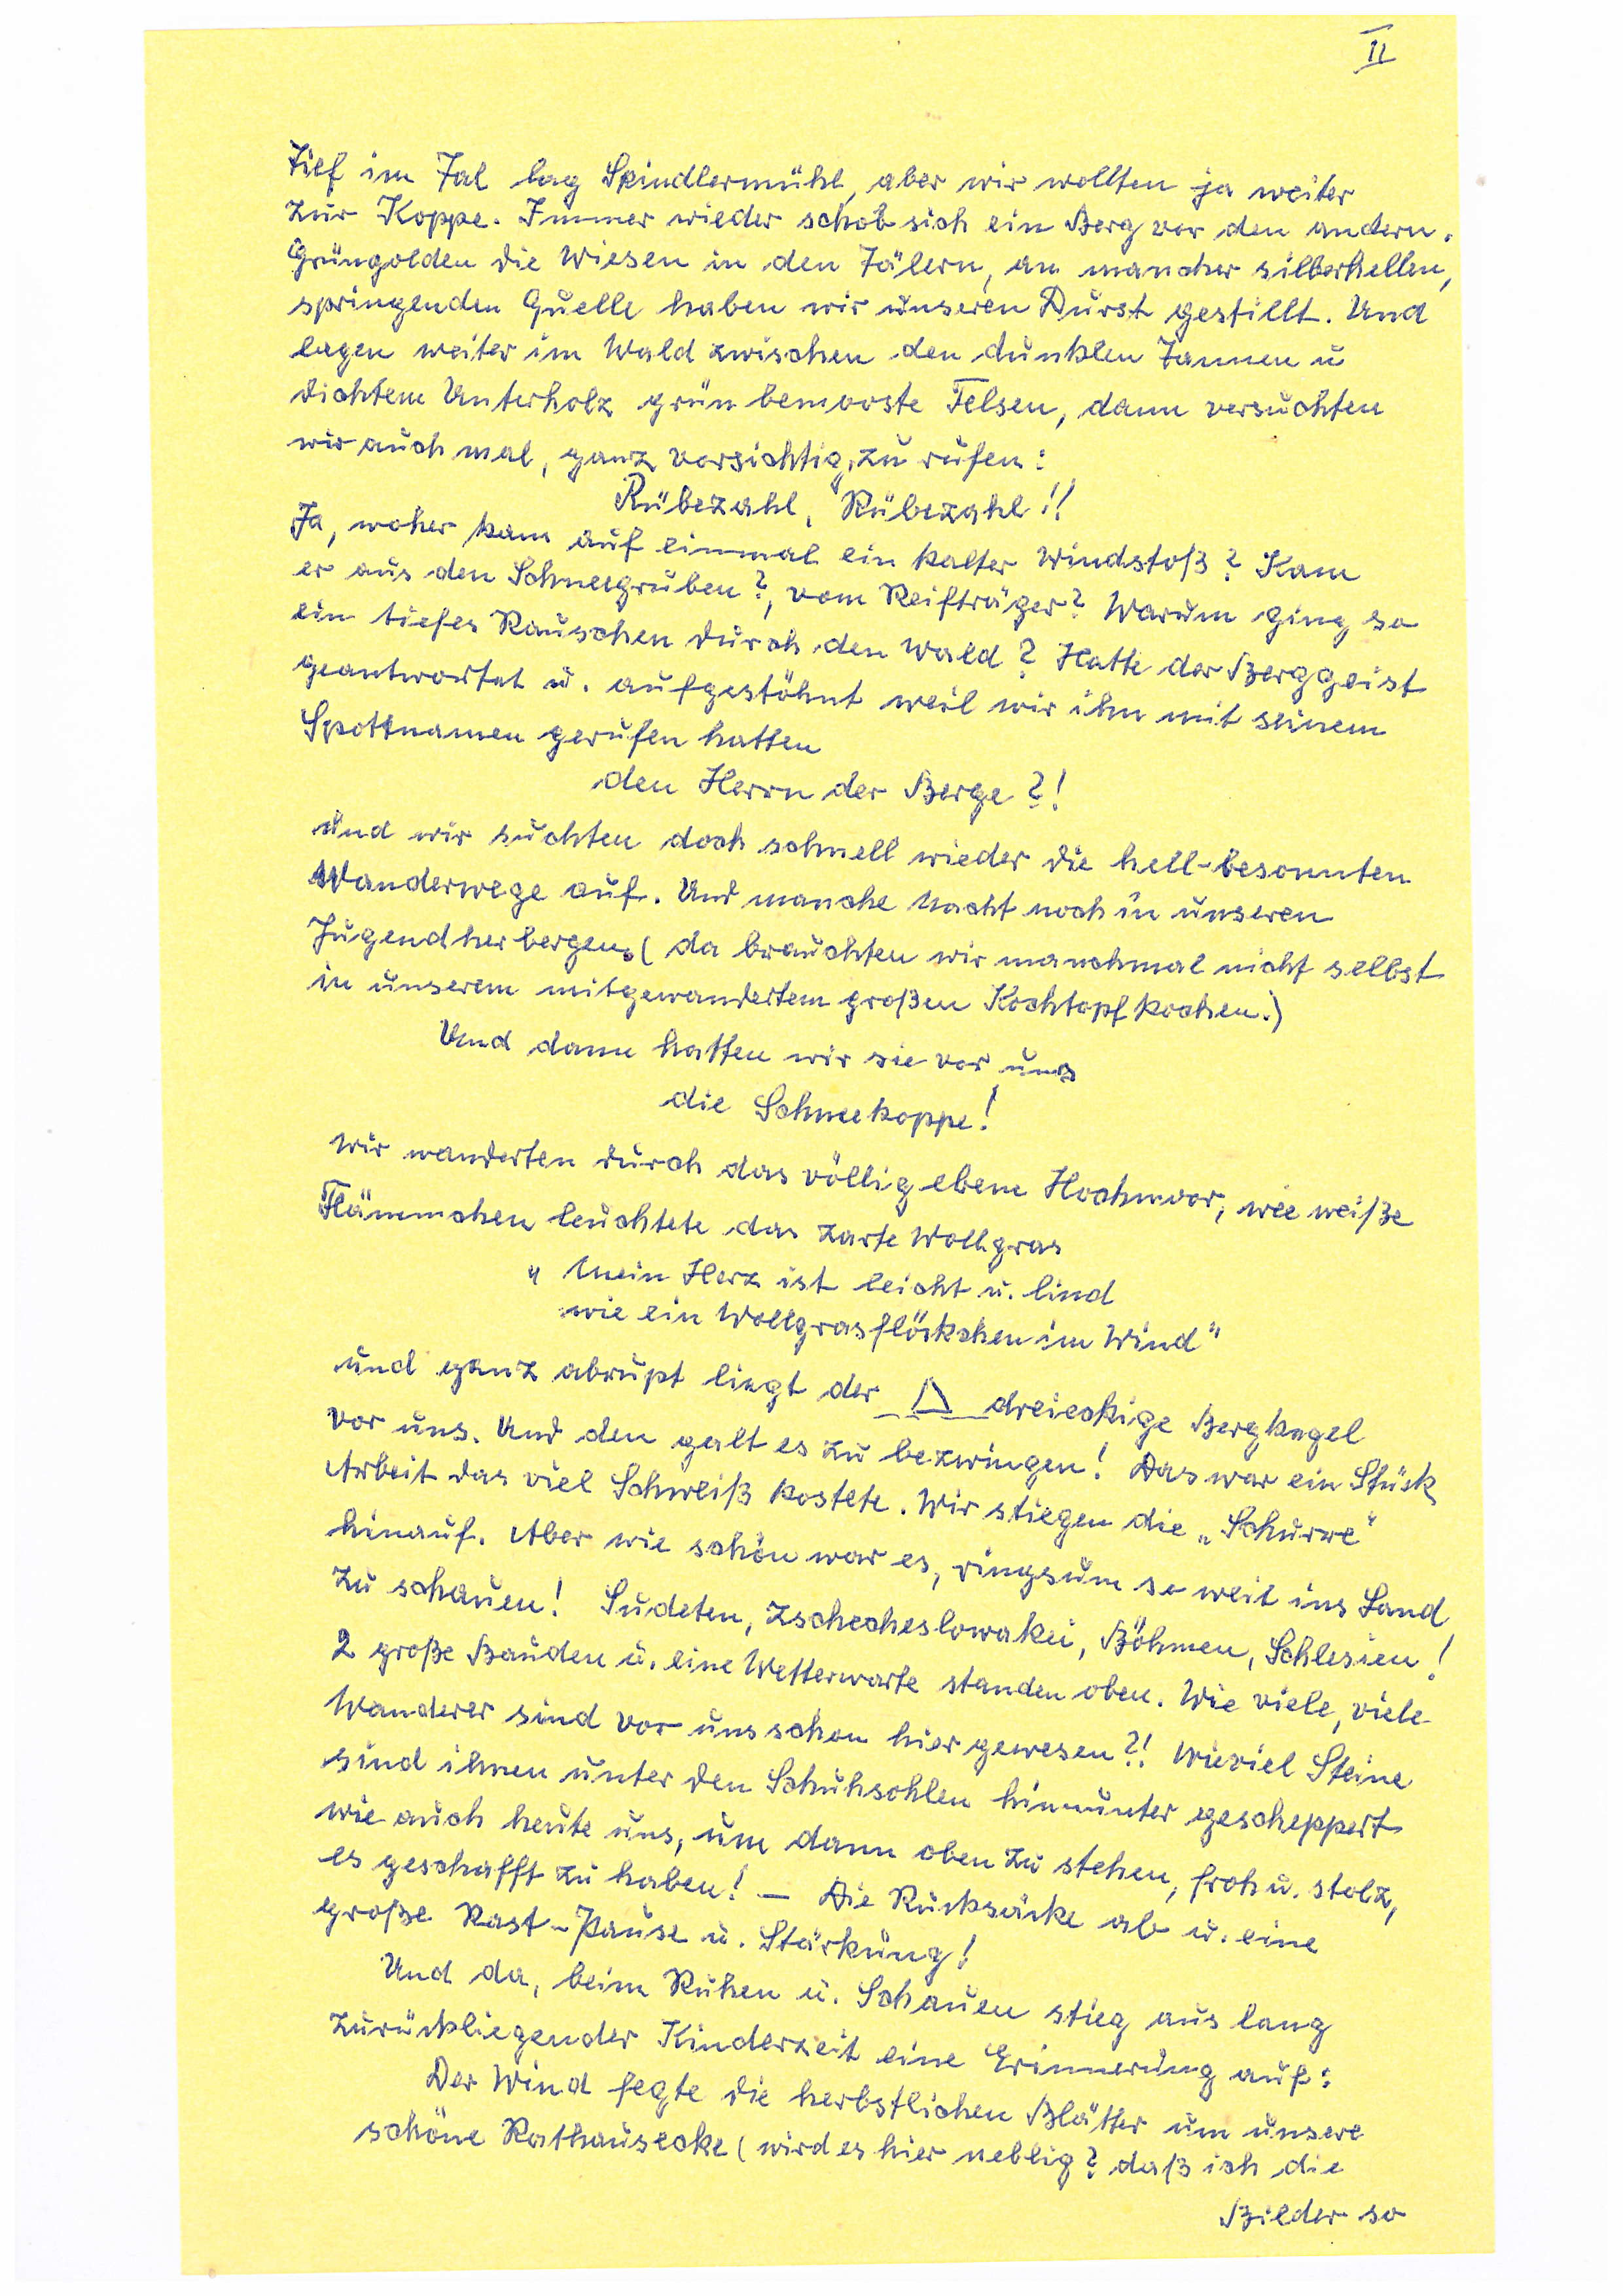 II
Tief im Tal lag Spindlermühl, aber wir wollten ja weiter
zur Koppe. Immer wieder schob sich ein Berg vor den andern.
Grüngolden die Wiesen in den Tälern, an mancher silberhellen,
springenden Quelle haben wir unseren Durst gestillt. Und
lagen weiter im Wald zwischen den dunklen Tannen u
dichtem Unterholz grün bemooste Felsen, dann versuchten
wir auch mal, ganz vorsichtig, zu rufen:
Rübezahl, Rübezahl!!
Ja, woher kam auf einmal ein kalter Windstoß? Kam
er aus den Schneegruben?, vom Reifträger? Warum ging so
ein tiefes Rauschen durch den Wald? Hatte der Berggeist
geantwortet u. aufgestöhnt weil wir ihn mit seinem
Spottnamen gerufen hatten
den Herrn der Berge?!
und wir suchten doch schnell wieder die hell-besonnten
Wanderwege auf. Und manche Nacht noch in unseren
Jugendherbergen. (da brauchten wir manchmal nicht selbst
in unserem mitgewandertem großen Kochtopf kochen.)
Und dann hatten wir sie vor uns
die Schneekoppe!
Wir wanderten durch das völlig ebene Hochmoor, wie weiße
Flämmchen leuchtete das zarte Wollgras
" Mein Herz ist leicht u. lind
wie ein Wollgrasflöckchen im Wind"
und ganz abrupt liegt der dreieckige Bergkegel
vor uns. Und den galt es zu bezwingen! Das war ein Stück
Arbeit das viel Schweiß kostete. Wir stiegen die „Schurre"
hinauf. Aber wie schön war es, ringsum so weit ins Land
zu schauen! Sudeten, Zschecheslowakei, Böhmen, Schlesien!
2 große Bauden u. eine Wetterwarte standen oben. Wie viele, viele
Wanderer sind vor uns schon hier gewesen?! Wieviel Steine
sind ihnen unter den Schuhsohlen hinunter gescheppert
wie auch heute uns, um dann oben zu stehen, froh u. stolz,
es geschafft zu haben! – Die Rucksäcke ab u. eine
große Rast-Pause u. Stärkung!
Und da, beim Ruhen u. Schauen stieg aus lang
zurückliegender Kinderzeit eine Erinnerung auf:
Der Wind fegte die herbstlichen Blätter um unsere
schöne Rathausecke (wird es hier neblig? daß ich die
Bilder so